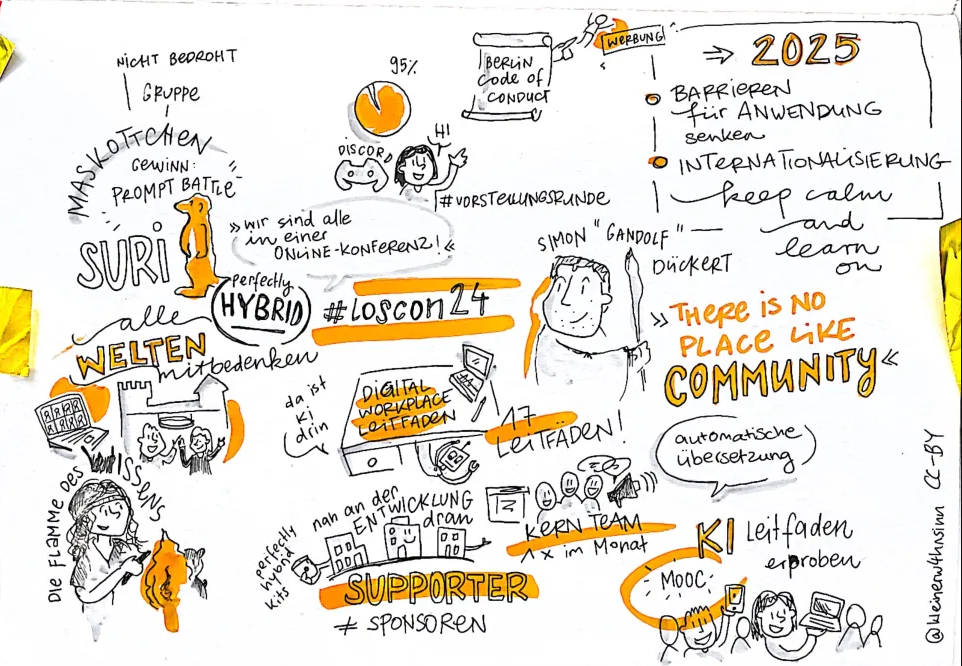 NICHT BEDROHT
GRUPPE
MASKOTTCHEN
GEWINN:
PROMPT BATTLE
SURI
95%
DISCORD
HI
#VORSTELLUNGSRUNDE
BERLIN
CODE of
CONDUCT
WERBUNG
⇒ 2025
BARRIEREN
für ANWENDUNG
senken
INTERNATIONALISIERUNG
keep calm
and
learn
on
»wir sind alle
in einer
ONLINE-KONFERENZ!«
perfectly
HYBRID
#loscon24
SIMON "GANDOLF"
DÜCKERT
»THERE IS NO
PLACE LIKE
COMMUNITY«
alle
WELTEN
mitbedenken
da ist
KI
drin
DIGITAL
WORKPLACE
LEITFADEN
17
LEITFÄDEN!
automatische
übersetzung
DIE FLAMME DES WISSENS
perfectly
hybrid
kits
nah an der
ENTWICKLUNG
dran
SUPPORTER
≠ SPONSOREN
KERN TEAM
1 x im Monat
KI Leitfaden
erproben
MOOC
@kleinerw4hnsinn CC-BY